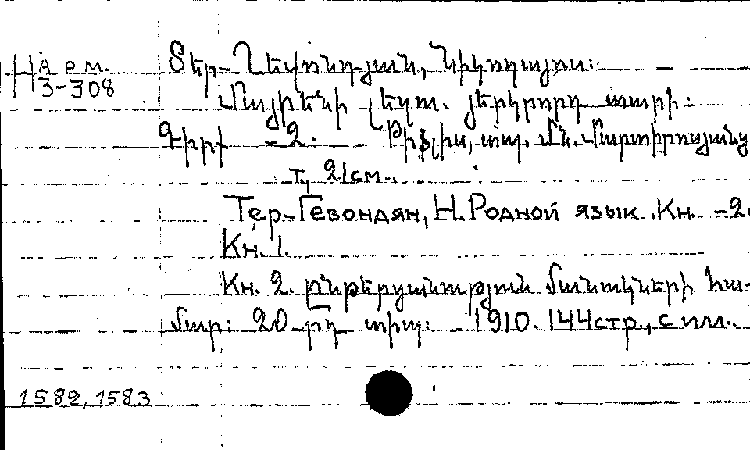 Н Арм. Տեր-Ղեւոնդյան, Նիկողայոս:
3-308
Մայրենի լեզու. յերկրորդ տարի:
Գիրք -2. Թիֆլիս, տպ. Մն. Մարտիրոսյանց
т, 21см.
Тер-Гевондян, Н. Родной язык. Кн. -2.
Кн. 1.
Кн. 2. ընթերցանություն մանուկների հա-
մար: 20-րդ տիպ: 1910. 144стр., с илл.
1582, 1583